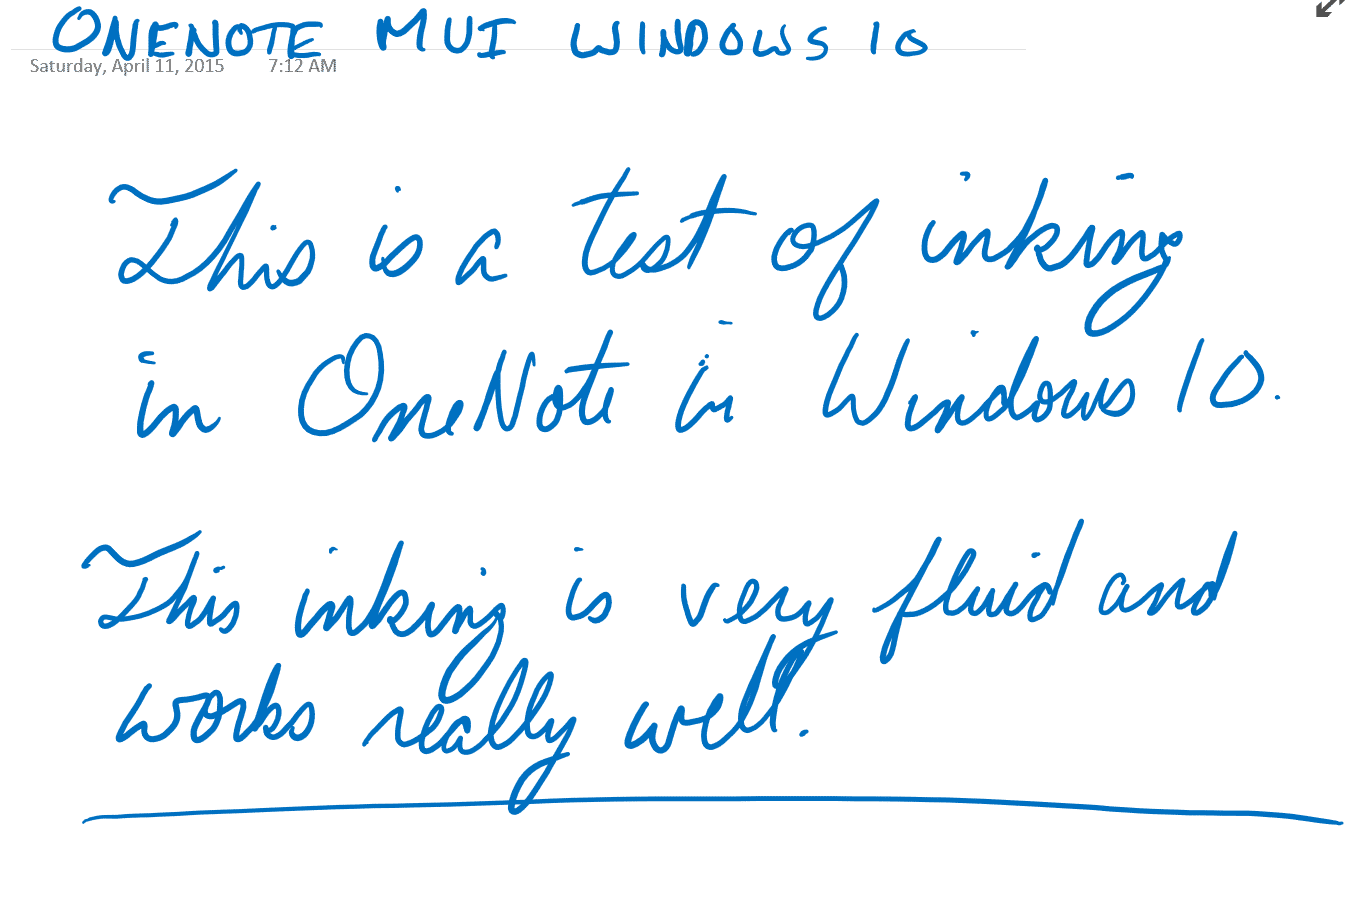 ONENOTE MUI WINDOWS 10
Saturday, April 11, 2015 7:12 AM
This is a test of inking
in OneNote in Windows 10.
This inking is very fluid and
works really well.